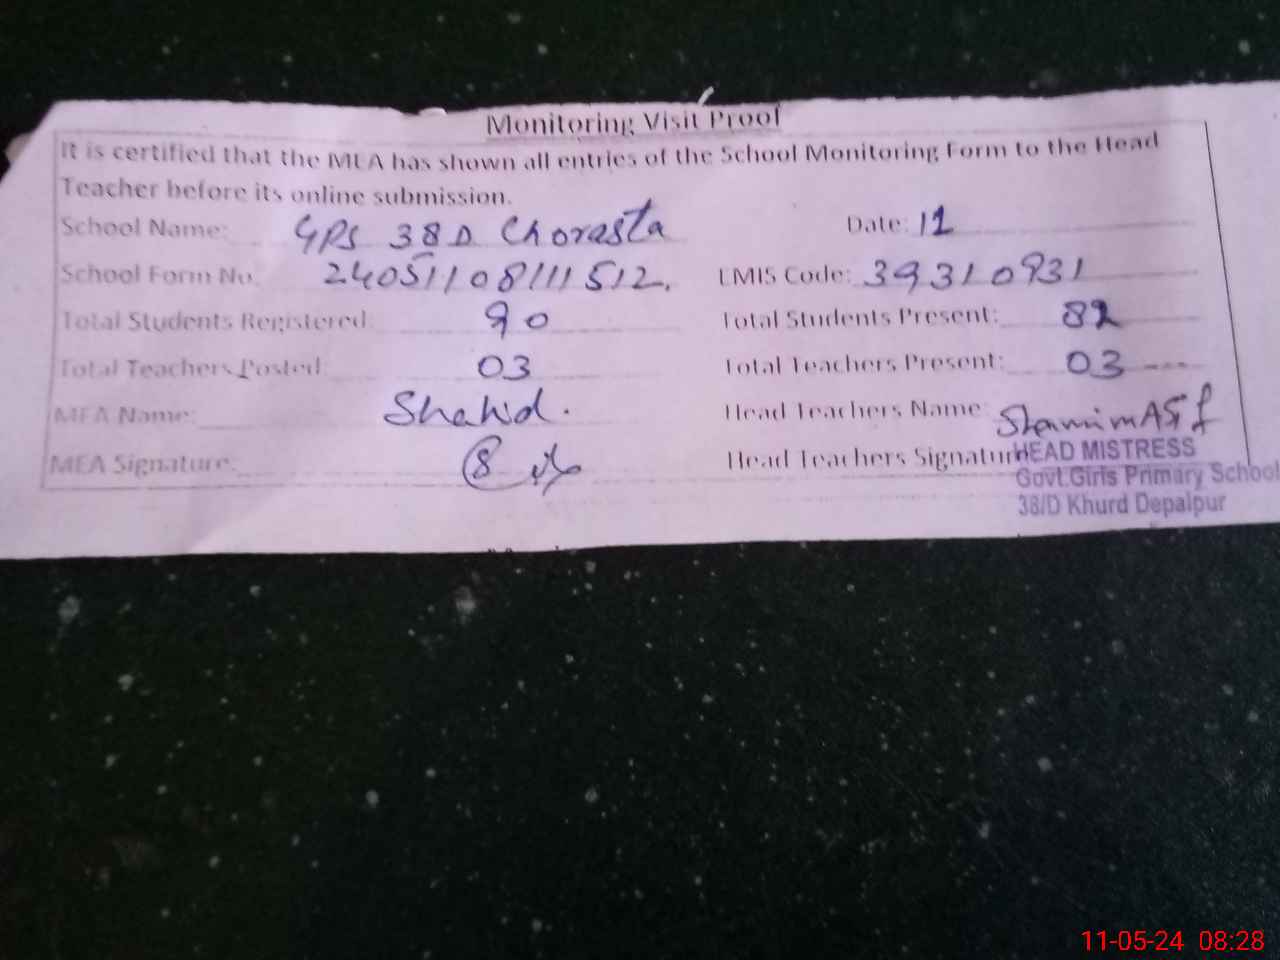 Monitoring Visit Proof
It is certified that the MEA has shown all entries of the School Monitoring Form to the Head
Teacher before its online submission.
School Name: GPS 38 D Chorasta Date: 12
School Form No. 24051108111512. EMIS Code: 39310931
Total Students Registered: 90 Total Students Present: 82
Total Teachers Posted: 03 Total Teachers Present: 03
MEA Name: Shahid. Head Teachers Name: Shamim Asif
MEA Signature: Head Teachers Signature
HEAD MISTRESS
Govt.Girls Primary School
38/D Khurd Depalpur
11-05-24 08:28